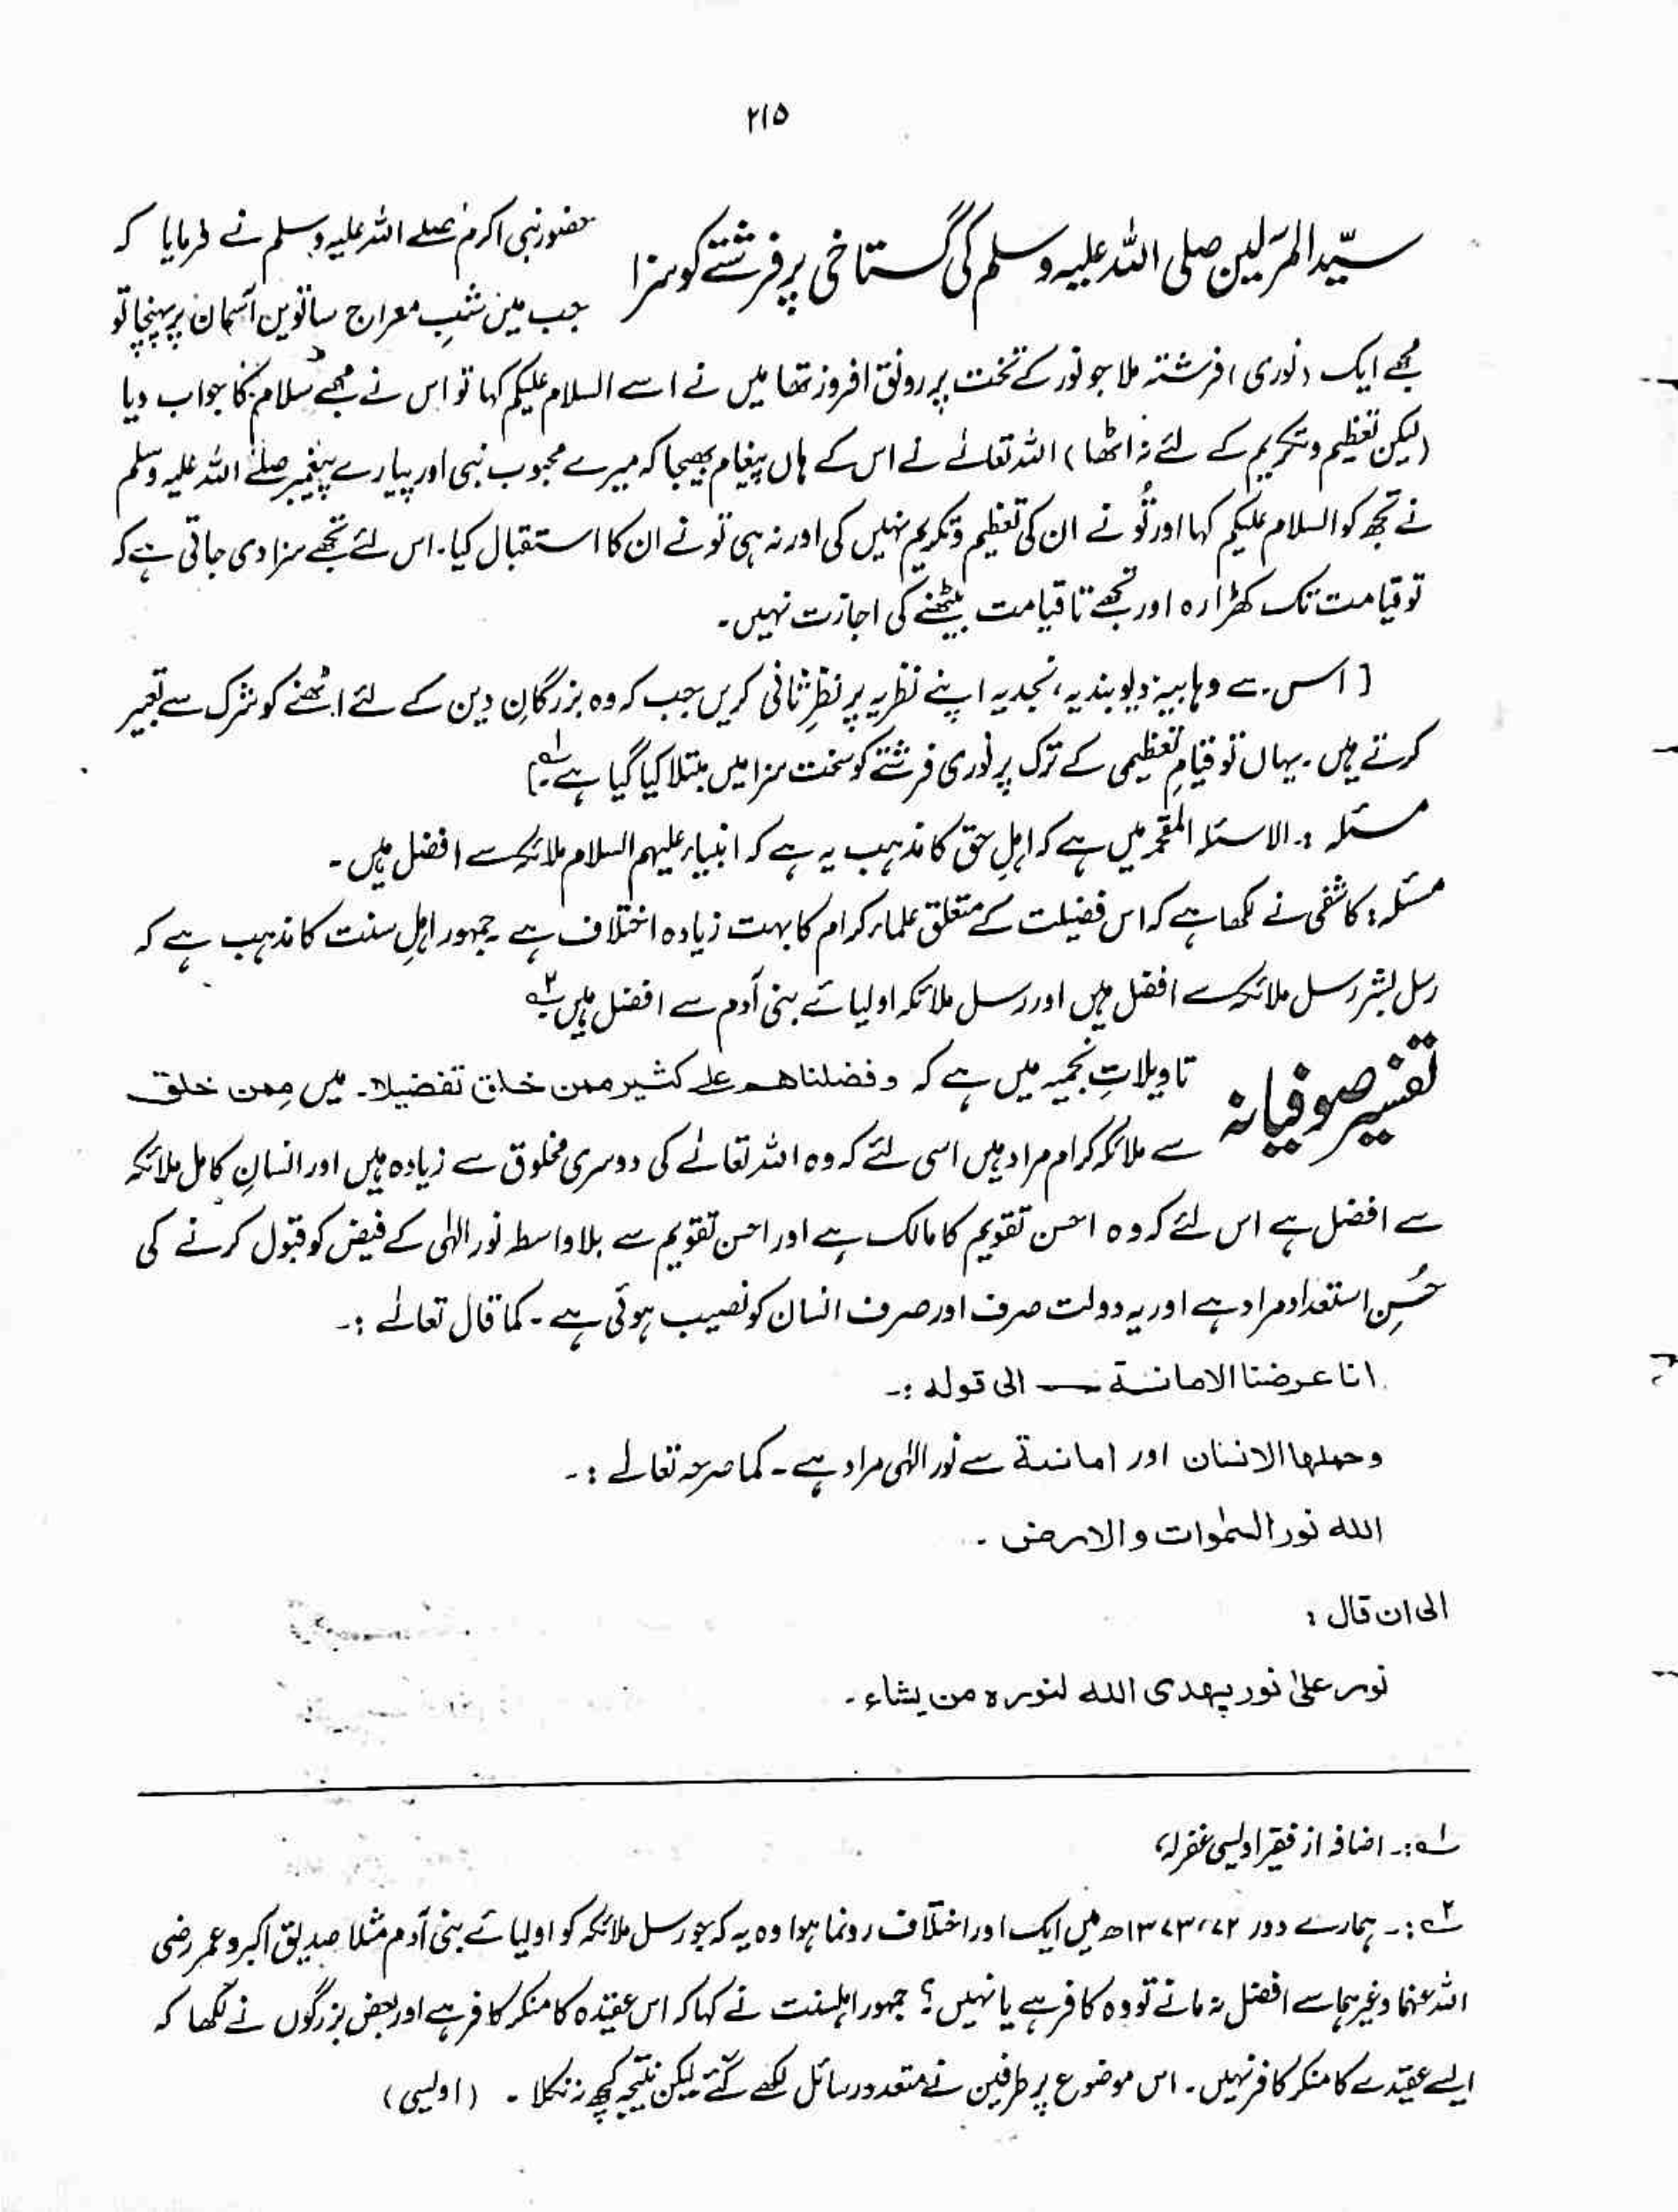 ۲۱۵
سیّدالمرسلین صلی اللہ علیہ وسلم کی گستاخی پر فرشتے کو سزا
حضور نبی اکرم صلے اللہ علیہ وسلم نے فرمایا کہ
جب میں شبِ معراج ساتویں آسمان پر پہنچا تو
مجھے ایک (نوری) فرشتہ ملا جو نور کے تخت پر رونق افروز تھا میں نے اسے السلام علیکم کہا تو اس نے مجھے سلام کا جواب دیا
(لیکن تعظیم و تکریم کے لئے نہ اٹھا) اللہ تعالےٰ نے اس کے ہاں پیغام بھیجا کہ میرے محبوب نبی اور پیارے پیغمبر صلے اللہ علیہ وسلم
نے تجھ کو السلام علیکم کہا اور تُو نے ان کی تعظیم و تکریم نہیں کی اور نہ ہی تو نے ان کا استقبال کیا۔ اس لئے تجھے سزا دی جاتی ہے کہ
تو قیامت تک کھڑا رہ اور تجھے تا قیامت بیٹھنے کی اجازت نہیں۔
[ اس سے وہابیہ، دیوبندیہ، نجدیہ اپنے نظریہ پر نظرِثانی کریں جب کہ وہ بزرگانِ دین کے لئے اٹھنے کو شرک سے تعبیر
کرتے ہیں۔ یہاں تو قیامِ تعظیمی کے ترک پر نوری فرشتے کو سخت سزا میں مبتلا کیا گیا ہے ۱؎]
مسئلہ :۔ الاسئلۃ المقحمہ میں ہے کہ اہلِ حق کا مذہب یہ ہے کہ انبیاء علیہم السلام ملائکہ سے افضل ہیں۔
مسئلہ : کاشفی نے لکھا ہے کہ اس فضیلت کے متعلق علماء کرام کا بہت زیادہ اختلاف ہے۔ جمہور اہلِ سنت کا مذہب ہے کہ
رسل بشر رسل ملائکہ سے افضل ہیں اور رسل ملائکہ اولیائے بنی آدم سے افضل ہیں ۲؎
تفسیر صوفیانہ
تاویلاتِ نجمیہ میں ہے کہ وفضلناھم علےٰ کثیر ممن خلق تفضیلا۔ میں مِمن خلق
سے ملائکہ کرام مراد ہیں اسی لئے کہ وہ اللہ تعالےٰ کی دوسری مخلوق سے زیادہ ہیں اور انسانِ کامل ملائکہ
سے افضل ہے اس لئے کہ وہ احسن تقویم کا مالک ہے اور احسن تقویم سے بلا واسطہ نور الٰہی کے فیض کو قبول کرنے کی
حُسنِ استعداد مراد ہے اور یہ دولت صرف اور صرف انسان کو نصیب ہوئی ہے۔ کما قال تعالےٰ :۔
انا عرضنا الامانۃ — الی قولہ :۔
وحملہا الانسان اور امانۃ سے نور الٰہی مراد ہے۔ کما صرحہ تعالےٰ :۔
اللہ نور السمٰوات والارض۔
الی ان قال :
نور علیٰ نور یھدی اللہ لنورہ من یشاء۔
۱؎ :۔ اضافہ از فقیر اویسی غفرلہٗ
۲؎ :۔ ہمارے دور ۷۲، ۱۳۷۳ھ میں ایک اور اختلاف رونما ہوا وہ یہ کہ جو رسل ملائکہ کو اولیائے بنی آدم مثلاً صدیق اکبر و عمر رضی
اللہ عنہما وغیرہما سے افضل نہ مانے تو وہ کافر ہے یا نہیں؟ جمہور اہلسنت نے کہا کہ اس عقیدہ کا منکر کافر ہے اور بعض بزرگوں نے لکھا کہ
ایسے عقیدے کا منکر کافر نہیں۔ اس موضوع پر طرفین نے متعدد رسائل لکھے گئے لیکن نتیجہ کچھ نہ نکلا۔ (اویسی)